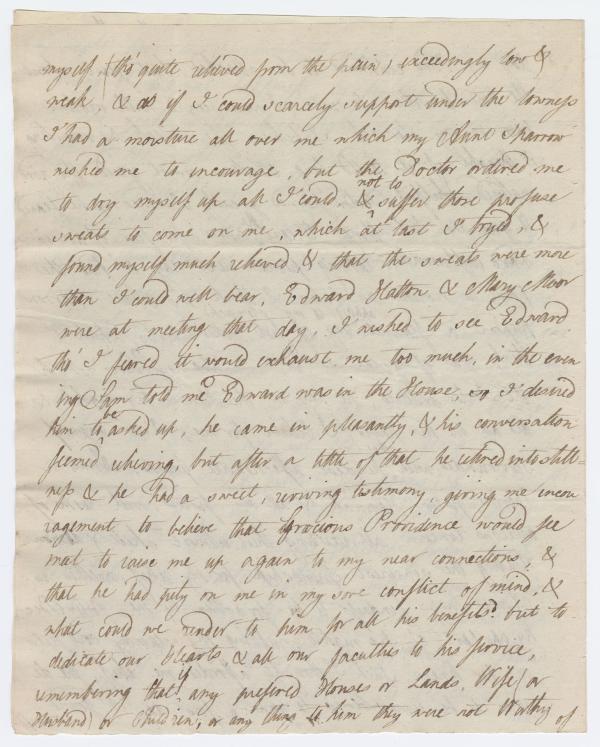 myself (tho' quite relieved from the pain) exceedingly low &
weak, & as if I could scarcely support under the lowness
I had a moisture all over me which my Aunt Sparrow
wished me to encourage, but the Doctor ordered me
to dry myself up all I could, & not to suffer those profuse
sweats to come on me, which at last I tryed, &
found myself much relieved, & that the sweats were more
than I could well bear, Edward Hatton & Mary Moor
were at meeting that day, I wished to see Edward
tho' I feared it would exhaust me too much, in the even
ing Sam told me Edward was in the House, so I desired
him to be asked up, he came in pleasantly, & his conversation
seemed relieving, but after a little of that he retired into still-
ness & he had a sweet, reviving testimony, giving me encou
ragement to believe that Gracious Providence would see
meet to raise me up again to my near connections, &
that he had pity on me in my sore conflict of mind, &
what could we render to him for all his benefits? but to
dedicate our Hearts, & all our faculties to his service,
remembering that if any prefered Houses or Lands, Wife (or
Husband) or Children, or any thing to him they were not Worthy of